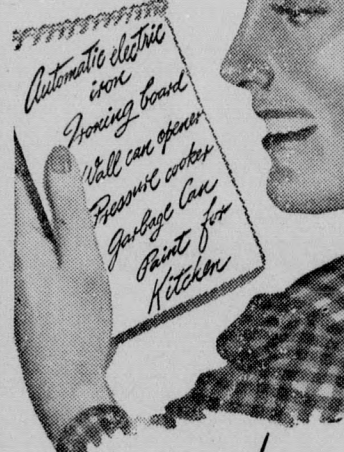 Automatic electric
iron
Ironing board
Wall can opener
Pressure cooker
Garbage Can
Paint for
Kitchen